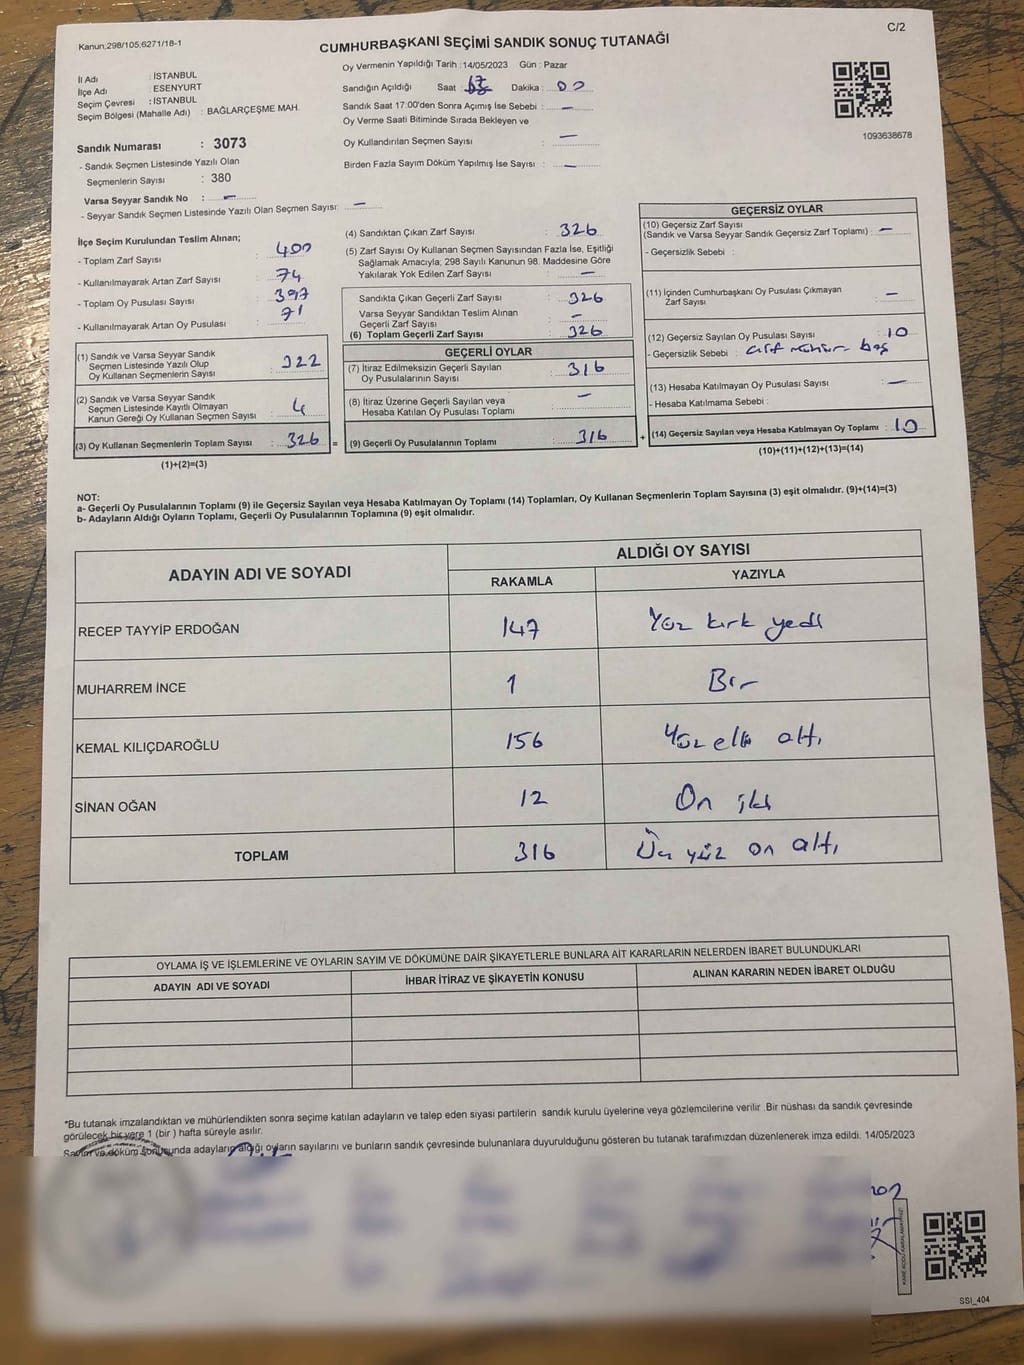 Kanun:298/105;6271/18-1
C/2
CUMHURBAŞKANI SEÇİMİ SANDIK SONUÇ TUTANAĞI
İl Adı : İSTANBUL
İlçe Adı : ESENYURT
Seçim Çevresi : İSTANBUL
Seçim Bölgesi (Mahalle Adı) : BAĞLARÇEŞME MAH.
Sandık Numarası : 3073
- Sandık Seçmen Listesinde Yazılı Olan
Seçmenlerin Sayısı : 380
Varsa Seyyar Sandık No : -
- Seyyar Sandık Seçmen Listesinde Yazılı Olan Seçmen Sayısı: -
Oy Vermenin Yapıldığı Tarih :14/05/2023 Gün : Pazar
Sandığın Açıldığı Saat : Dakika : 00
Sandık Saat 17:00'den Sonra Açımış İse Sebebi : -
Oy Verme Saati Bitiminde Sırada Bekleyen ve
Oy Kullandırılan Seçmen Sayısı : -
Birden Fazla Sayım Döküm Yapılmış İse Sayısı : -
1093638678
İlçe Seçim Kurulundan Teslim Alınan;
- Toplam Zarf Sayısı : 400
- Kullanılmayarak Artan Zarf Sayısı : 74
- Toplam Oy Pusulası Sayısı : 397
- Kullanılmayarak Artan Oy Pusulası : 71
(1) Sandık ve Varsa Seyyar Sandık
Seçmen Listesinde Yazılı Olup
Oy Kullanan Seçmenlerin Sayısı : 322
(2) Sandık ve Varsa Seyyar Sandık
Seçmen Listesinde Kayıtlı Olmayan
Kanun Gereği Oy Kullanan Seçmen Sayısı : 4
(3) Oy Kullanan Seçmenlerin Toplam Sayısı : 326 =
(1)+(2)=(3)
(4) Sandıktan Çıkan Zarf Sayısı : 326
(5) Zarf Sayısı Oy Kullanan Seçmen Sayısından Fazla İse, Eşitliği
Sağlamak Amacıyla; 298 Sayılı Kanunun 98. Maddesine Göre
Yakılarak Yok Edilen Zarf Sayısı : -
Sandıkta Çıkan Geçerli Zarf Sayısı : 326
Varsa Seyyar Sandıktan Teslim Alınan
Geçerli Zarf Sayısı : -
(6) Toplam Geçerli Zarf Sayısı : 326
GEÇERLİ OYLAR
(7) İtiraz Edilmeksizin Geçerli Sayılan
Oy Pusulalarının Sayısı : 316
(8) İtiraz Üzerine Geçerli Sayılan veya
Hesaba Katılan Oy Pusulası Toplamı : -
(9) Geçerli Oy Pusulalarının Toplamı : 316 +
GEÇERSİZ OYLAR
(10) Geçersiz Zarf Sayısı
(Sandık ve Varsa Seyyar Sandık Geçersiz Zarf Toplamı) : -
- Geçersizlik Sebebi :
(11) İçinden Cumhurbaşkanı Oy Pusulası Çıkmayan
Zarf Sayısı : -
(12) Geçersiz Sayılan Oy Pusulası Sayısı : 10
- Geçersizlik Sebebi : çift mühür boş
(13) Hesaba Katılmayan Oy Pusulası Sayısı : -
- Hesaba Katılmama Sebebi :
(14) Geçersiz Sayılan veya Hesaba Katılmayan Oy Toplamı : 10
(10)+(11)+(12)+(13)=(14)
NOT:
a- Geçerli Oy Pusulalarının Toplamı (9) ile Geçersiz Sayılan veya Hesaba Katılmayan Oy Toplamı (14) Toplamları, Oy Kullanan Seçmenlerin Toplam Sayısına (3) eşit olmalıdır. (9)+(14)=(3)
b- Adayların Aldığı Oyların Toplamı, Geçerli Oy Pusulalarının Toplamına (9) eşit olmalıdır.
ADAYIN ADI VE SOYADI
ALDIĞI OY SAYISI
RAKAMLA YAZIYLA
RECEP TAYYİP ERDOĞAN 147 Yüz kırk yedi
MUHARREM İNCE 1 Bir
KEMAL KILIÇDAROĞLU 156 Yüz elli altı
SİNAN OĞAN 12 On iki
TOPLAM 316 Üç yüz on altı
OYLAMA İŞ VE İŞLEMLERİNE VE OYLARIN SAYIM VE DÖKÜMÜNE DAİR ŞİKAYETLERLE BUNLARA AİT KARARLARIN NELERDEN İBARET BULUNDUKLARI
ADAYIN ADI VE SOYADI İHBAR İTİRAZ VE ŞİKAYETİN KONUSU ALINAN KARARIN NEDEN İBARET OLDUĞU
*Bu tutanak imzalandıktan ve mühürlendikten sonra seçime katılan adayların ve talep eden siyasi partilerin sandık kurulu üyelerine veya gözlemcilerine verilir .Bir nüshası da sandık çevresinde
görülecek bir yere 1 (bir ) hafta süreyle asılır.
Sayım ve döküm sonusunda adayların aldığı oyların sayılarını ve bunların sandık çevresinde bulunanlara duyurulduğunu gösteren bu tutanak tarafımızdan düzenlenerek imza edildi. 14/05/2023
KARE KODU KARALAMAYINIZ!
SSI_404